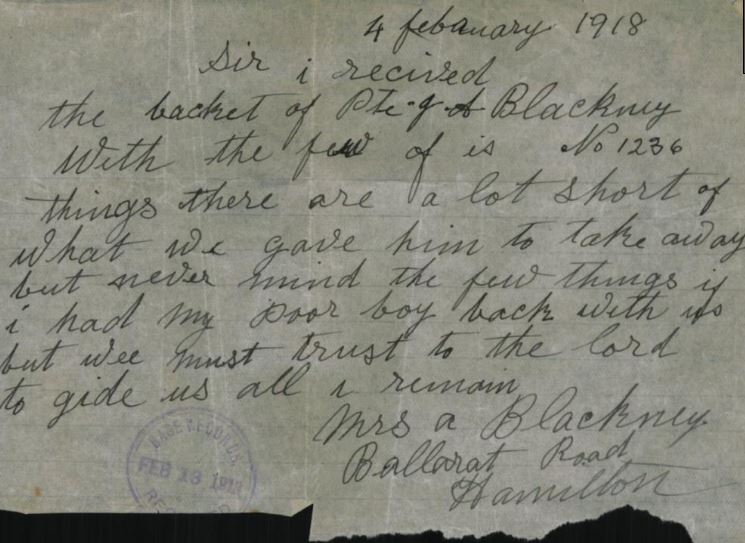 4 febauary 1918
Sir i recived
the backet of Pte. g A Blackney
With the few of is No 1236
things there are a lot short of
what we gave him to take away
but never mind the few things if
i had my poor boy back with us
but wee must trust to the lord
to gide us all i remain
Mrs a Blackney
Ballarat Road
Hamilton
BASE RECORDS
FEB 13 1918